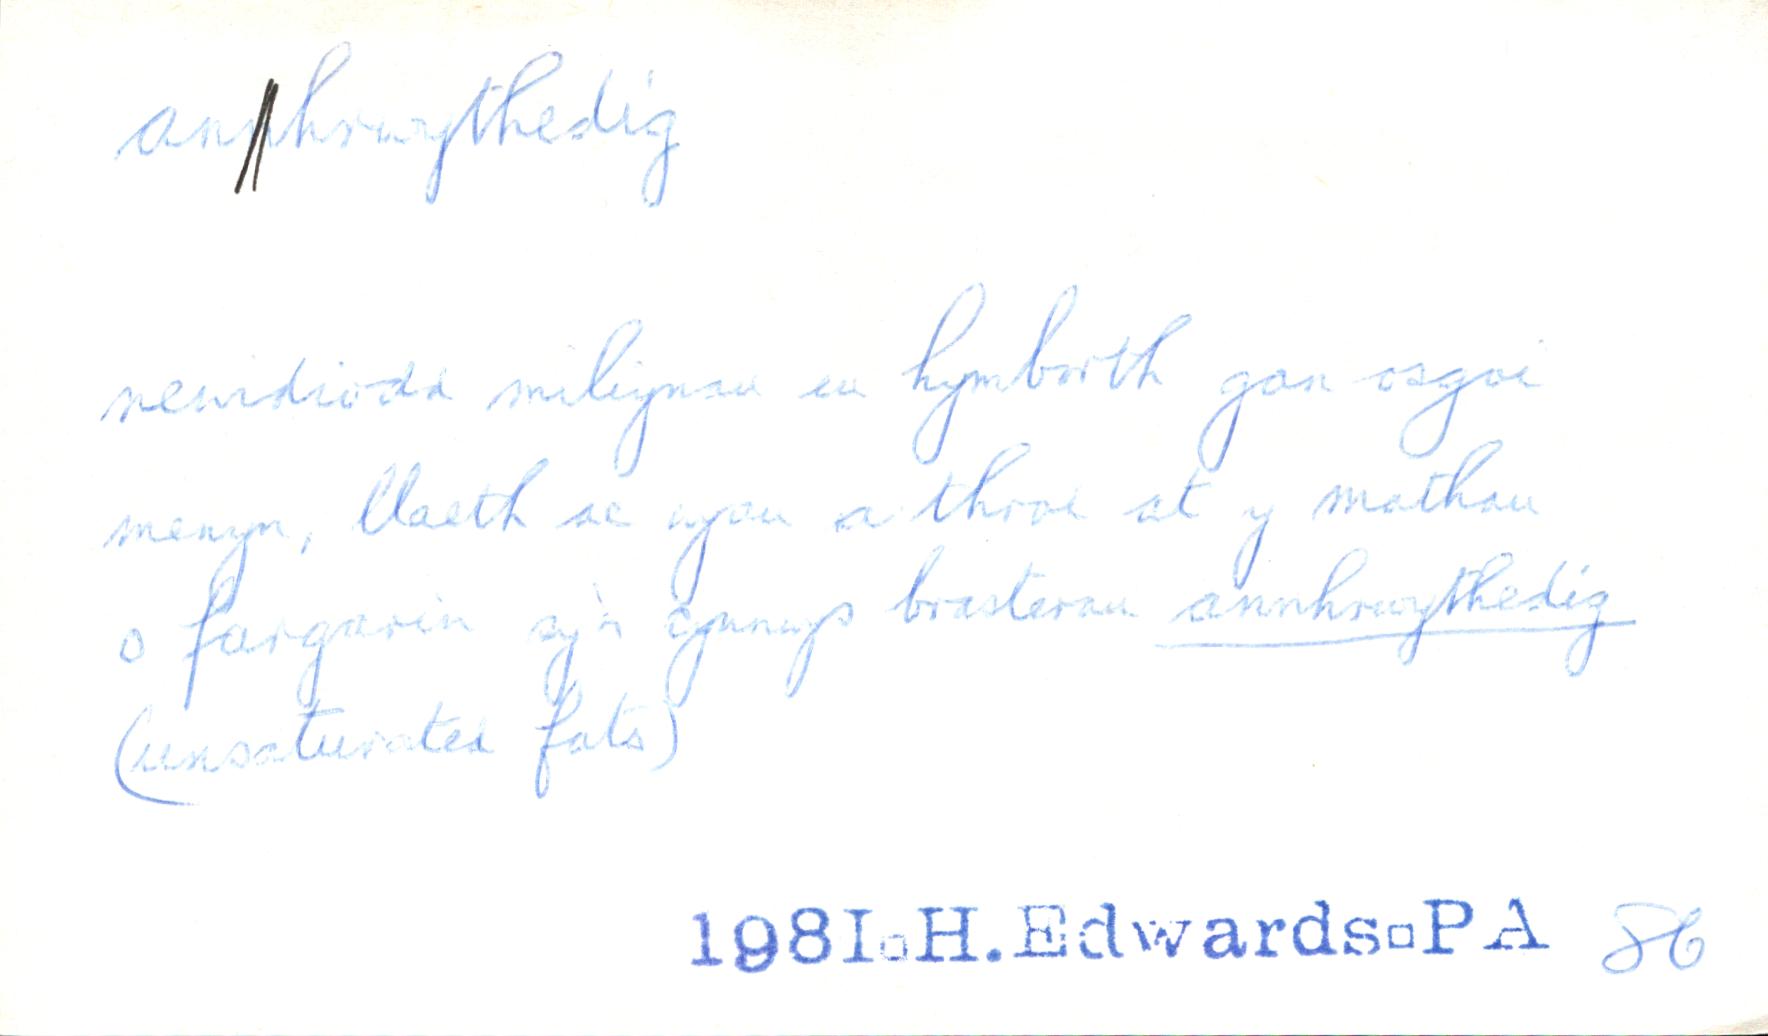 annhrwythedig
newidiodd miliynau eu hymborth gan osgoi
menyn, llaeth ac wyau a throi at y mathau
o fargarin sy'n cynnwys brasterau annhrwythedig
(unsaturated fats)
1981 H. Edwards PA 86